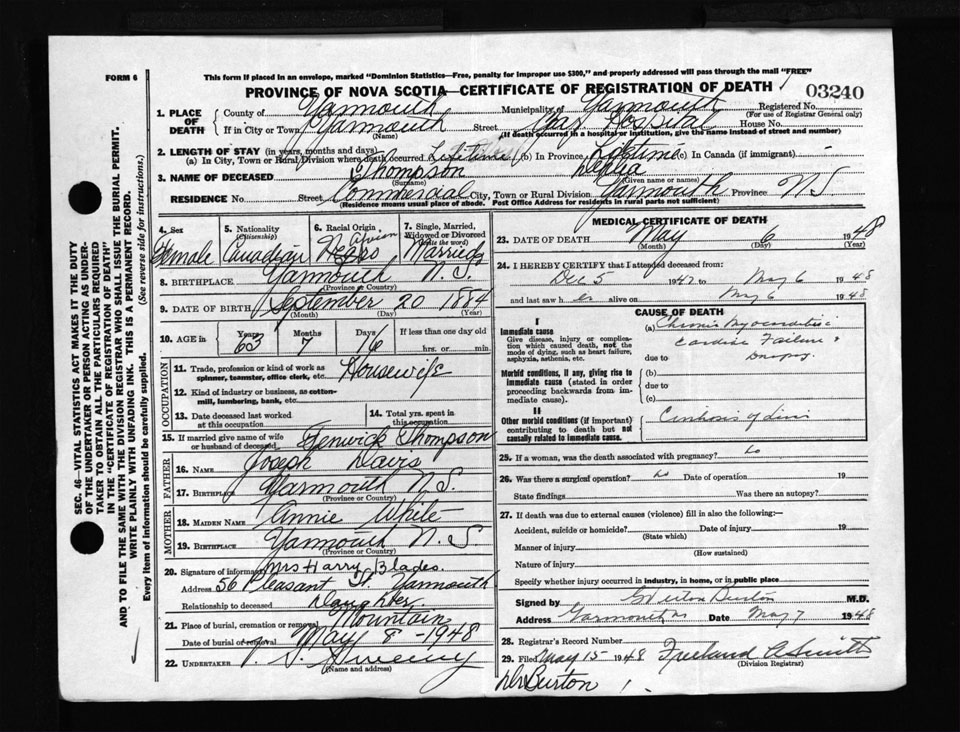 FORM 6
This form if placed in an envelope, marked "Dominion Statistics—Free, penalty for improper use $300," and properly addressed will pass through the mail "FREE"
PROVINCE OF NOVA SCOTIA—CERTIFICATE OF REGISTRATION OF DEATH
03240
1. PLACE OF DEATH
County of Yarmouth Municipality of Yarmouth Registered No.
(For use of Registrar General only)
If in City or Town Yarmouth Street Yar. Hospital House No.
(Name) (If death occurred in a hospital or institution, give the name instead of street and number)
2. LENGTH OF STAY (in years, months and days)
(a) In City, Town or Rural Division where death occurred Lifetime (b) In Province Lifetime (c) In Canada (if immigrant) -
3. NAME OF DECEASED Thompson
(Surname) (Given name or names)
RESIDENCE No. Street Commercial City, Town or Rural Division Yarmouth Province N S
(Residence means usual place of abode. Post Office Address for residents in rural parts not sufficient)
4. Sex Female
5. Nationality (Citizenship) Canadian
6. Racial Origin Negro
7. Single, Married, Widowed or Divorced (Write the word) Married
8. BIRTHPLACE Yarmouth N. S.
(Province or Country)
9. DATE OF BIRTH September 20 1884
(Month) (Day) (Year)
10. AGE in Years 63 Months 7 Days 16 If less than one day old hrs. or min.
OCCUPATION
11. Trade, profession or kind of work as spinner, teamster, office clerk, etc. Housewife
12. Kind of industry or business, as cotton-mill, lumbering, bank, etc.
13. Date deceased last worked at this occupation
14. Total yrs. spent in this occupation
15. If married give name of wife or husband of deceased Fenwick Thompson
FATHER
16. NAME Joseph Davis
17. BIRTHPLACE Yarmouth N.S.
(Province or Country)
MOTHER
18. MAIDEN NAME Annie White
19. BIRTHPLACE Yarmouth N. S
(Province or Country)
20. Signature of informant Mrs Harry Blades.
Address 56 Pleasant St. Yarmouth
Relationship to deceased Daughter
21. Place of burial, cremation or removal Mountain
Date of burial or removal May 8 - 1948
22. UNDERTAKER V. S. Sweeny
(Name and address)
MEDICAL CERTIFICATE OF DEATH
23. DATE OF DEATH May 6 1948
(Month) (Day) (Year)
24. I HEREBY CERTIFY that I attended deceased from:
Dec 5 1947 to May 6 1948
and last saw her alive on May 6 1948
CAUSE OF DEATH
I
Immediate cause
Give disease, injury or complication which caused death, not the mode of dying, such as heart failure, asphyxia, asthenia, etc.
(a) Chronic Myocarditis
Cardiac Failure &
due to Dropsy.
Morbid conditions, if any, giving rise to immediate cause (stated in order proceeding backwards from immediate cause).
(b)
due to
(c)
II
Other morbid conditions (if important) contributing to death but not causally related to immediate cause.
Cirrhosis of Liver
25. If a woman, was the death associated with pregnancy?
26. Was there a surgical operation? no Date of operation 19
State findings Was there an autopsy?
27. If death was due to external causes (violence) fill in also the following:—
Accident, suicide or homicide? Date of injury 19
(State which)
Manner of injury
(How sustained)
Nature of injury
Specify whether injury occurred in industry, in home, or in public place
Signed by Burton M.D.
Address Yarmouth NS Date May 7 1948
28. Registrar's Record Number
29. Filed May 15 1948 Freeland A Smith
(Division Registrar)
Dr Burton
SEC. 46—VITAL STATISTICS ACT MAKES IT THE DUTY
OF THE UNDERTAKER OR PERSON ACTING AS UNDER-
TAKER TO OBTAIN ALL THE PARTICULARS REQUIRED
IN THE "CERTIFICATE OF REGISTRATION OF DEATH"
AND TO FILE THE SAME WITH THE DIVISION REGISTRAR WHO SHALL ISSUE THE BURIAL PERMIT.
WRITE PLAINLY WITH UNFADING INK. THIS IS A PERMANENT RECORD.
Every item of information should be carefully supplied. (See reverse side for instructions.)